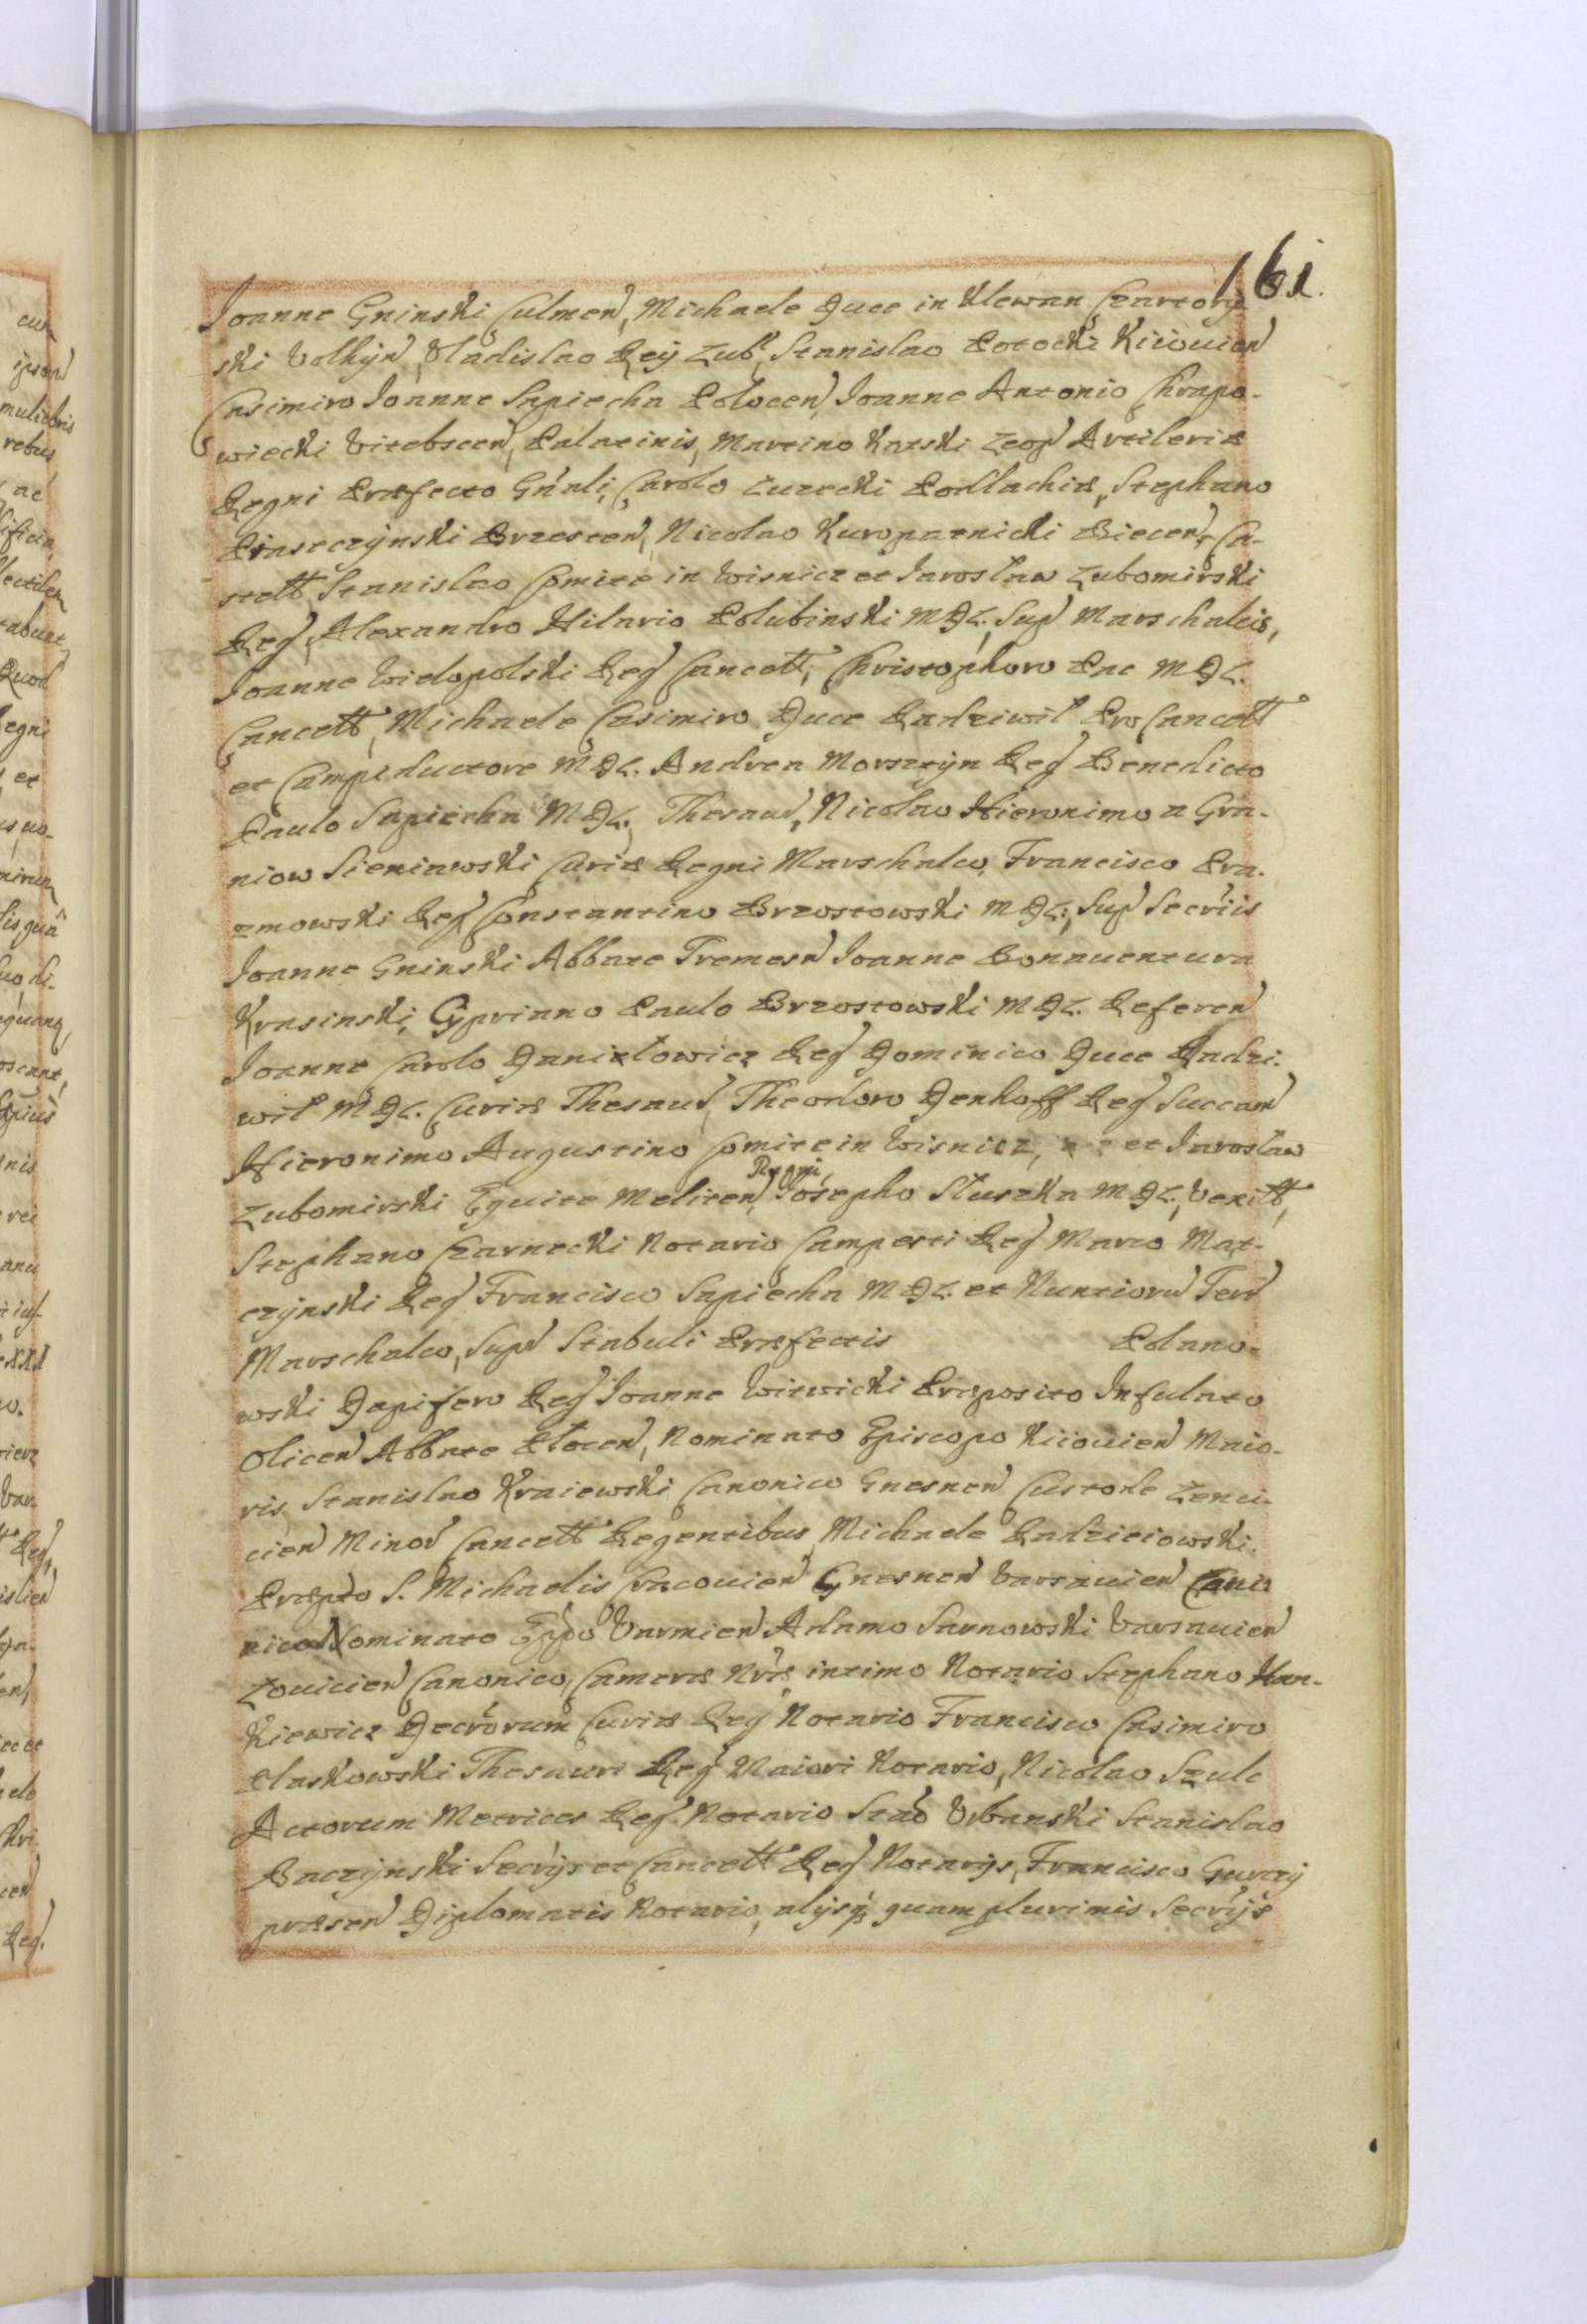 161.
Joanne Gninski Culmen, Michaele Duce in Klewan Czartory-
ski Volhyn, Vladislao Rey Lub, Stanislao Potocki Kiiouien
Casimiro Joanne Sapiecha Polocen, Joanne Antonio Chrapo-
wiecki Vitebscen, Palatinis, Martino Katski Leop Artileriæ
Regni Præfecto Gnali, Carolo Luzecki Podlachiæ, Stephano
Piaseczynski Brzesten, Nicolao Kuropatnicki Biecen, Ca-
stell, Stanislao Comite in Wisnicz et Jaroslaw Lubomirski
Reg, Alexandro Hilario Polubinski M D L. Sup Marschalcis,
Joanne Wielopolski Reg Cancell, Christophoro Pac M D L.
Cancell, Michaele Casimiro Duce Radziwil Pro Cancell
et Campiductore M D L. Andrea Morsztyn Reg Benedicto
Paulo Sapiecha M D L. Thesaur, Nicolao Hieronimo a Gra-
niow Sieniawski Curiæ Regni Marschalco, Francisco Pra-
zmowski Reg Constantino Brzostowski M D L. Sup Secriis
Joanne Gninski Abbate Tremesn Joanne Bonauentura
Krasinski, Cypriano Paulo Brzostowski M D L. Referen
Joanne Carolo Danielowicz Reg Dominico Duce Radzi-
wil M D L. Curiæ Thesaur, Theodoro Denhoff Reg Succam
Hieronimo Augustino Comite in Wisnicz, et Jaroslaw
Lubomirski Equite Meliten, Regni, Josepho Sluszka M D L, Vexill,
Stephano Czarnecki Notario Campestri Reg Marco Mat-
czynski Reg Francisco Sapiecha M D L. et Nuntioru Terr
Marschalco, Sup Stabuli Præfectis Polano-
wski Dapifero Reg Joanne Witwicki Præposito Infulato
Olicen Abbate Plocen, Nominato Episcopo Kiiouien Maio-
ris Stanislao Kraiewski Canonico Gnesnen Custode Lenci-
cien Minor Cancell Regentibus, Michaele Radzieiowski.
Præpto S. Michaelis Cracouien Gnesnen Varsauien Cano
nico Nominato Eppo Varmien Adamo Sarnowski Varsauien
Louicien Canonico, Cameræ Nræ intimo Notario Stephano Han-
kiewicz Decrorum Curiæ Reg Notario Francisco Casimiro
Plaskowski Thesauri Reg Maiori Notario, Nicolao Szulc
Actorum Metrices Reg Notario Stão Urbanski Stanislao
Baczynski Secrijs et Cancell Reg Notarijs, Francisco Gurczy
præsen Diplomatis Notario, alijsq quam plurimis Secrijs